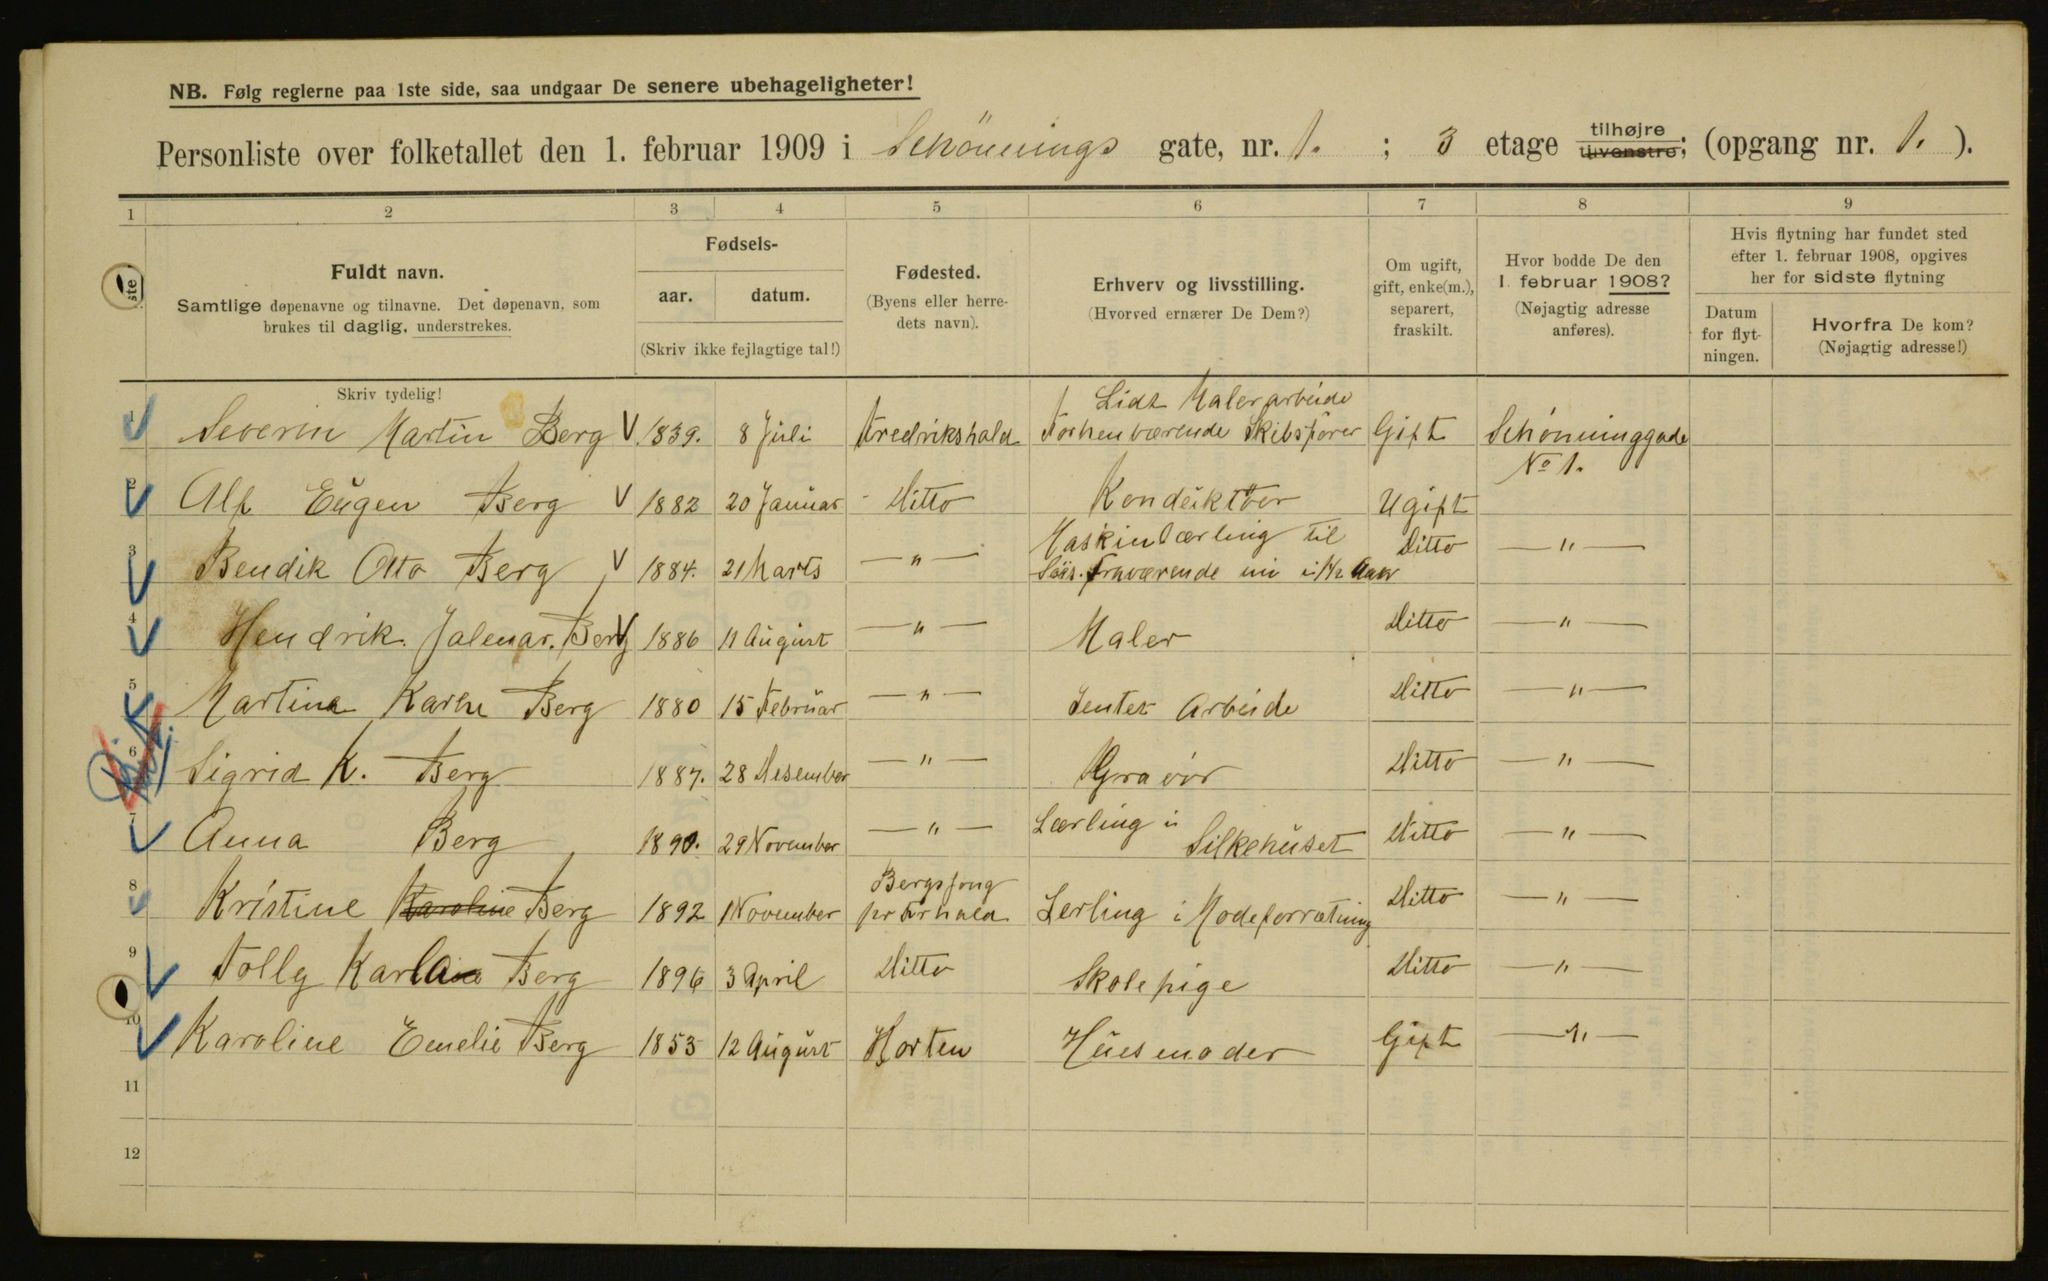 NB. Følg reglerne paa 1ste side, saa undgaar De senere ubehageligheter!
Personliste over folketallet den 1. februar 1909 i Schönnings gate, nr. 1. ; 3 etage tilhøjre tilvenstre; (opgang nr. 1. ).
1 2 3 4 5 6 7 8 9
Fuldt navn.
Samtlige døpenavne og tilnavne. Det døpenavn, som
brukes til daglig, understrekes.
Fødsels-
aar. datum.
(Skriv ikke fejlagtige tal!)
Fødested.
(Byens eller herre-
dets navn).
Erhverv og livsstilling.
(Hvorved ernærer De Dem?)
Om ugift,
gift, enke(m.),
separert,
fraskilt.
Hvor bodde De den
1. februar 1908?
(Nøjagtig adresse
anføres).
Hvis flytning har fundet sted
efter 1. februar 1908, opgives
her for sidste flytning
Datum
for flyt-
ningen.
Hvorfra De kom?
(Nøjagtig adresse!)
Skriv tydelig!
Lidt Malerarbeide
1 Severin Martin Berg 1839. 8 Juli Fredrikshald Forhenværende Skibsfører Gift Schönninggade
No 1.
2 Alf Eugen Berg 1882 20 Januar Ditto Konduktöer Ugift
Maskinlærling til
3 Bendik Otto Berg 1884. 21 Marts — " — Söis. fraværende nu i 1 1/2 Aar Ditto — " —
4 Hendrik. Jalmar. Berg 1886 11 August — " — Maler Ditto — " —
5 Martina Karen Berg 1880 15 Februar — " — Jenter Arbeide Ditto — " —
6 Sigrid K. Berg 1887. 28 Desember — " — Gravör Ditto — " —
7 Anna Berg 1890. 29 November — " — Lærling i Silkehuset Ditto — " —
Bergsjong
8 Kristine Karoline Berg 1892 1 November pr Frhald Lerling i Modeforretning Ditto — " —
9 Tolly Karla Berg 1896 3 April Ditto Skolepige Ditto — " —
10 Karoline Emelie Berg 1853 12 August Horten Huesmoder Gift — " —
11
12